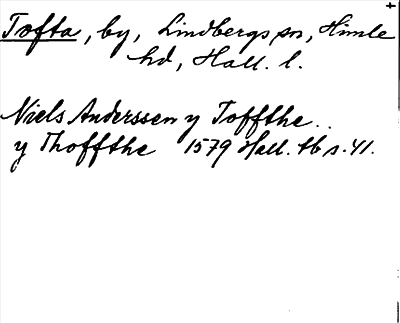 Tofta, by, Lindbergs sn, Himle
hd, Hall. l.
Niels Anderssen y Toffthe..
y Thoffthe 1579 Hall. tb s. 41.